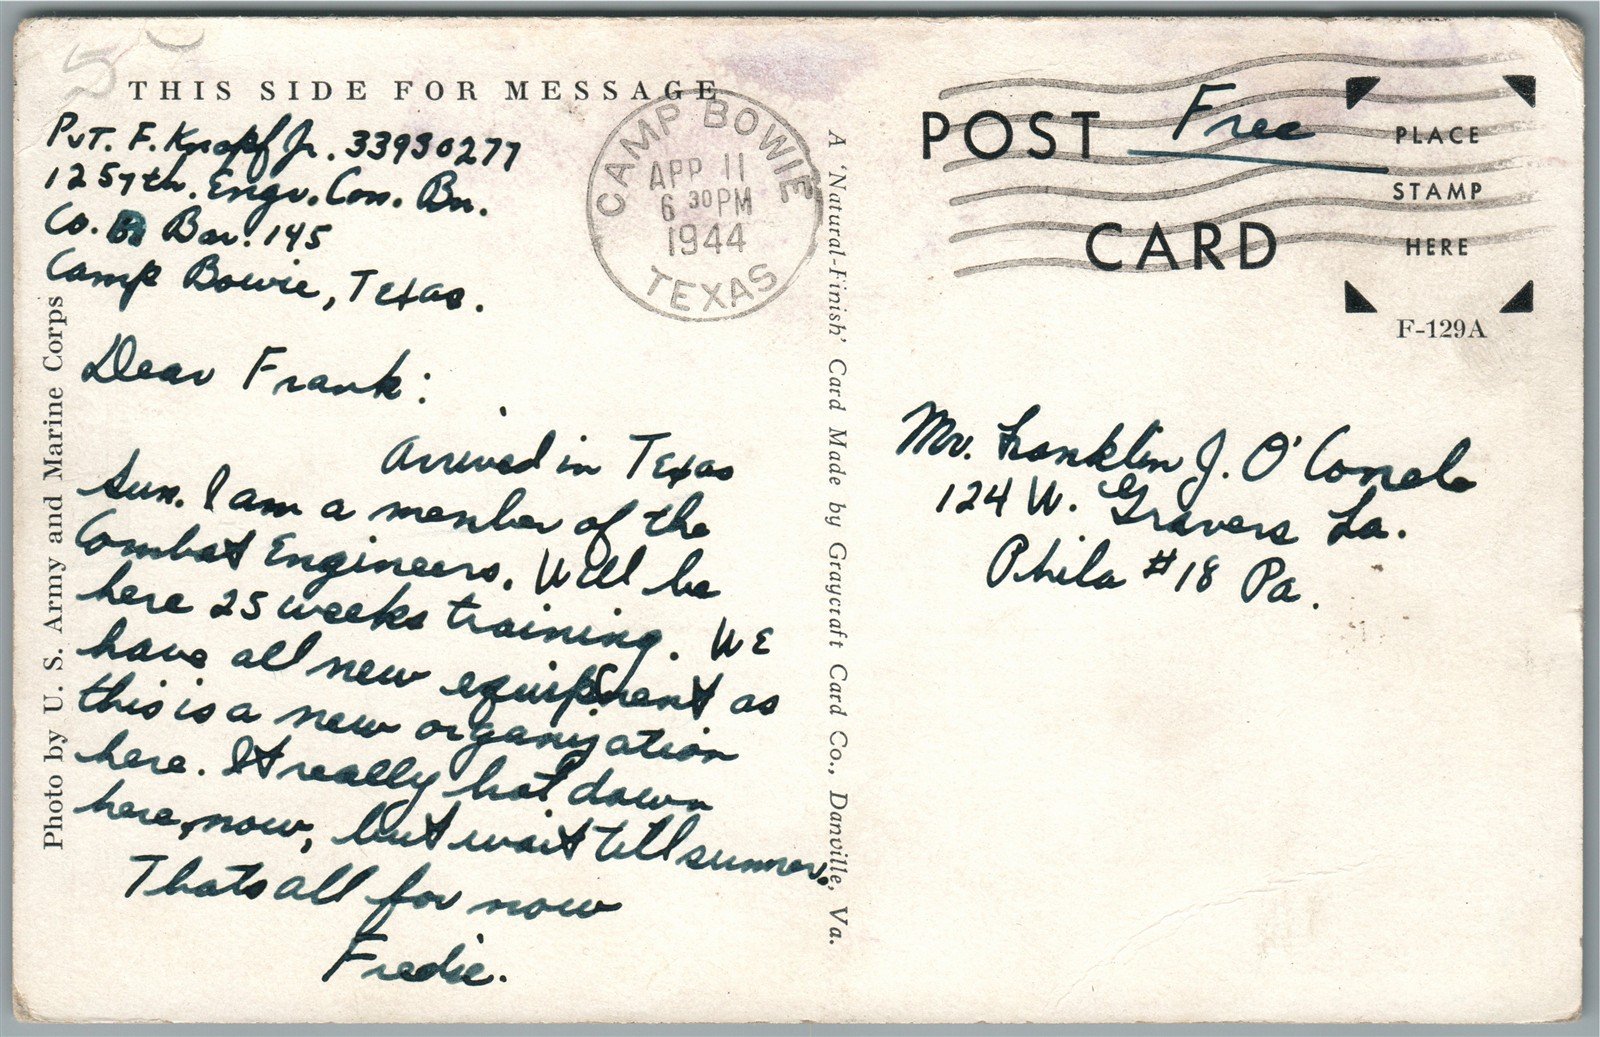 THIS SIDE FOR MESSAGE
Pvt. F. Knapf Jr. 33930277
1257th. Engr. Con. Bn.
Co. B Bar. 145
Camp Bowie, Texas.
Dear Frank:
Arrived in Texas
Sun. I am a member of the
Combat Engineers. Will be
here 25 weeks training. We
have all new equipment as
this is a new organization
here. It really hot down
here, now, but wait till summer.
Thats all for now
Fredie.
Photo by U. S. Army and Marine Corps
CAMP BOWIE
APR 11
6 30 PM
1944
TEXAS
A 'Natural-Finish' Card Made by Graycraft Card Co., Danville, Va.
POST CARD
Free
PLACE
STAMP
HERE
F-129A
Mr. Franklin J. O'Conel
124 W. Gravers La.
Phila #18 Pa.